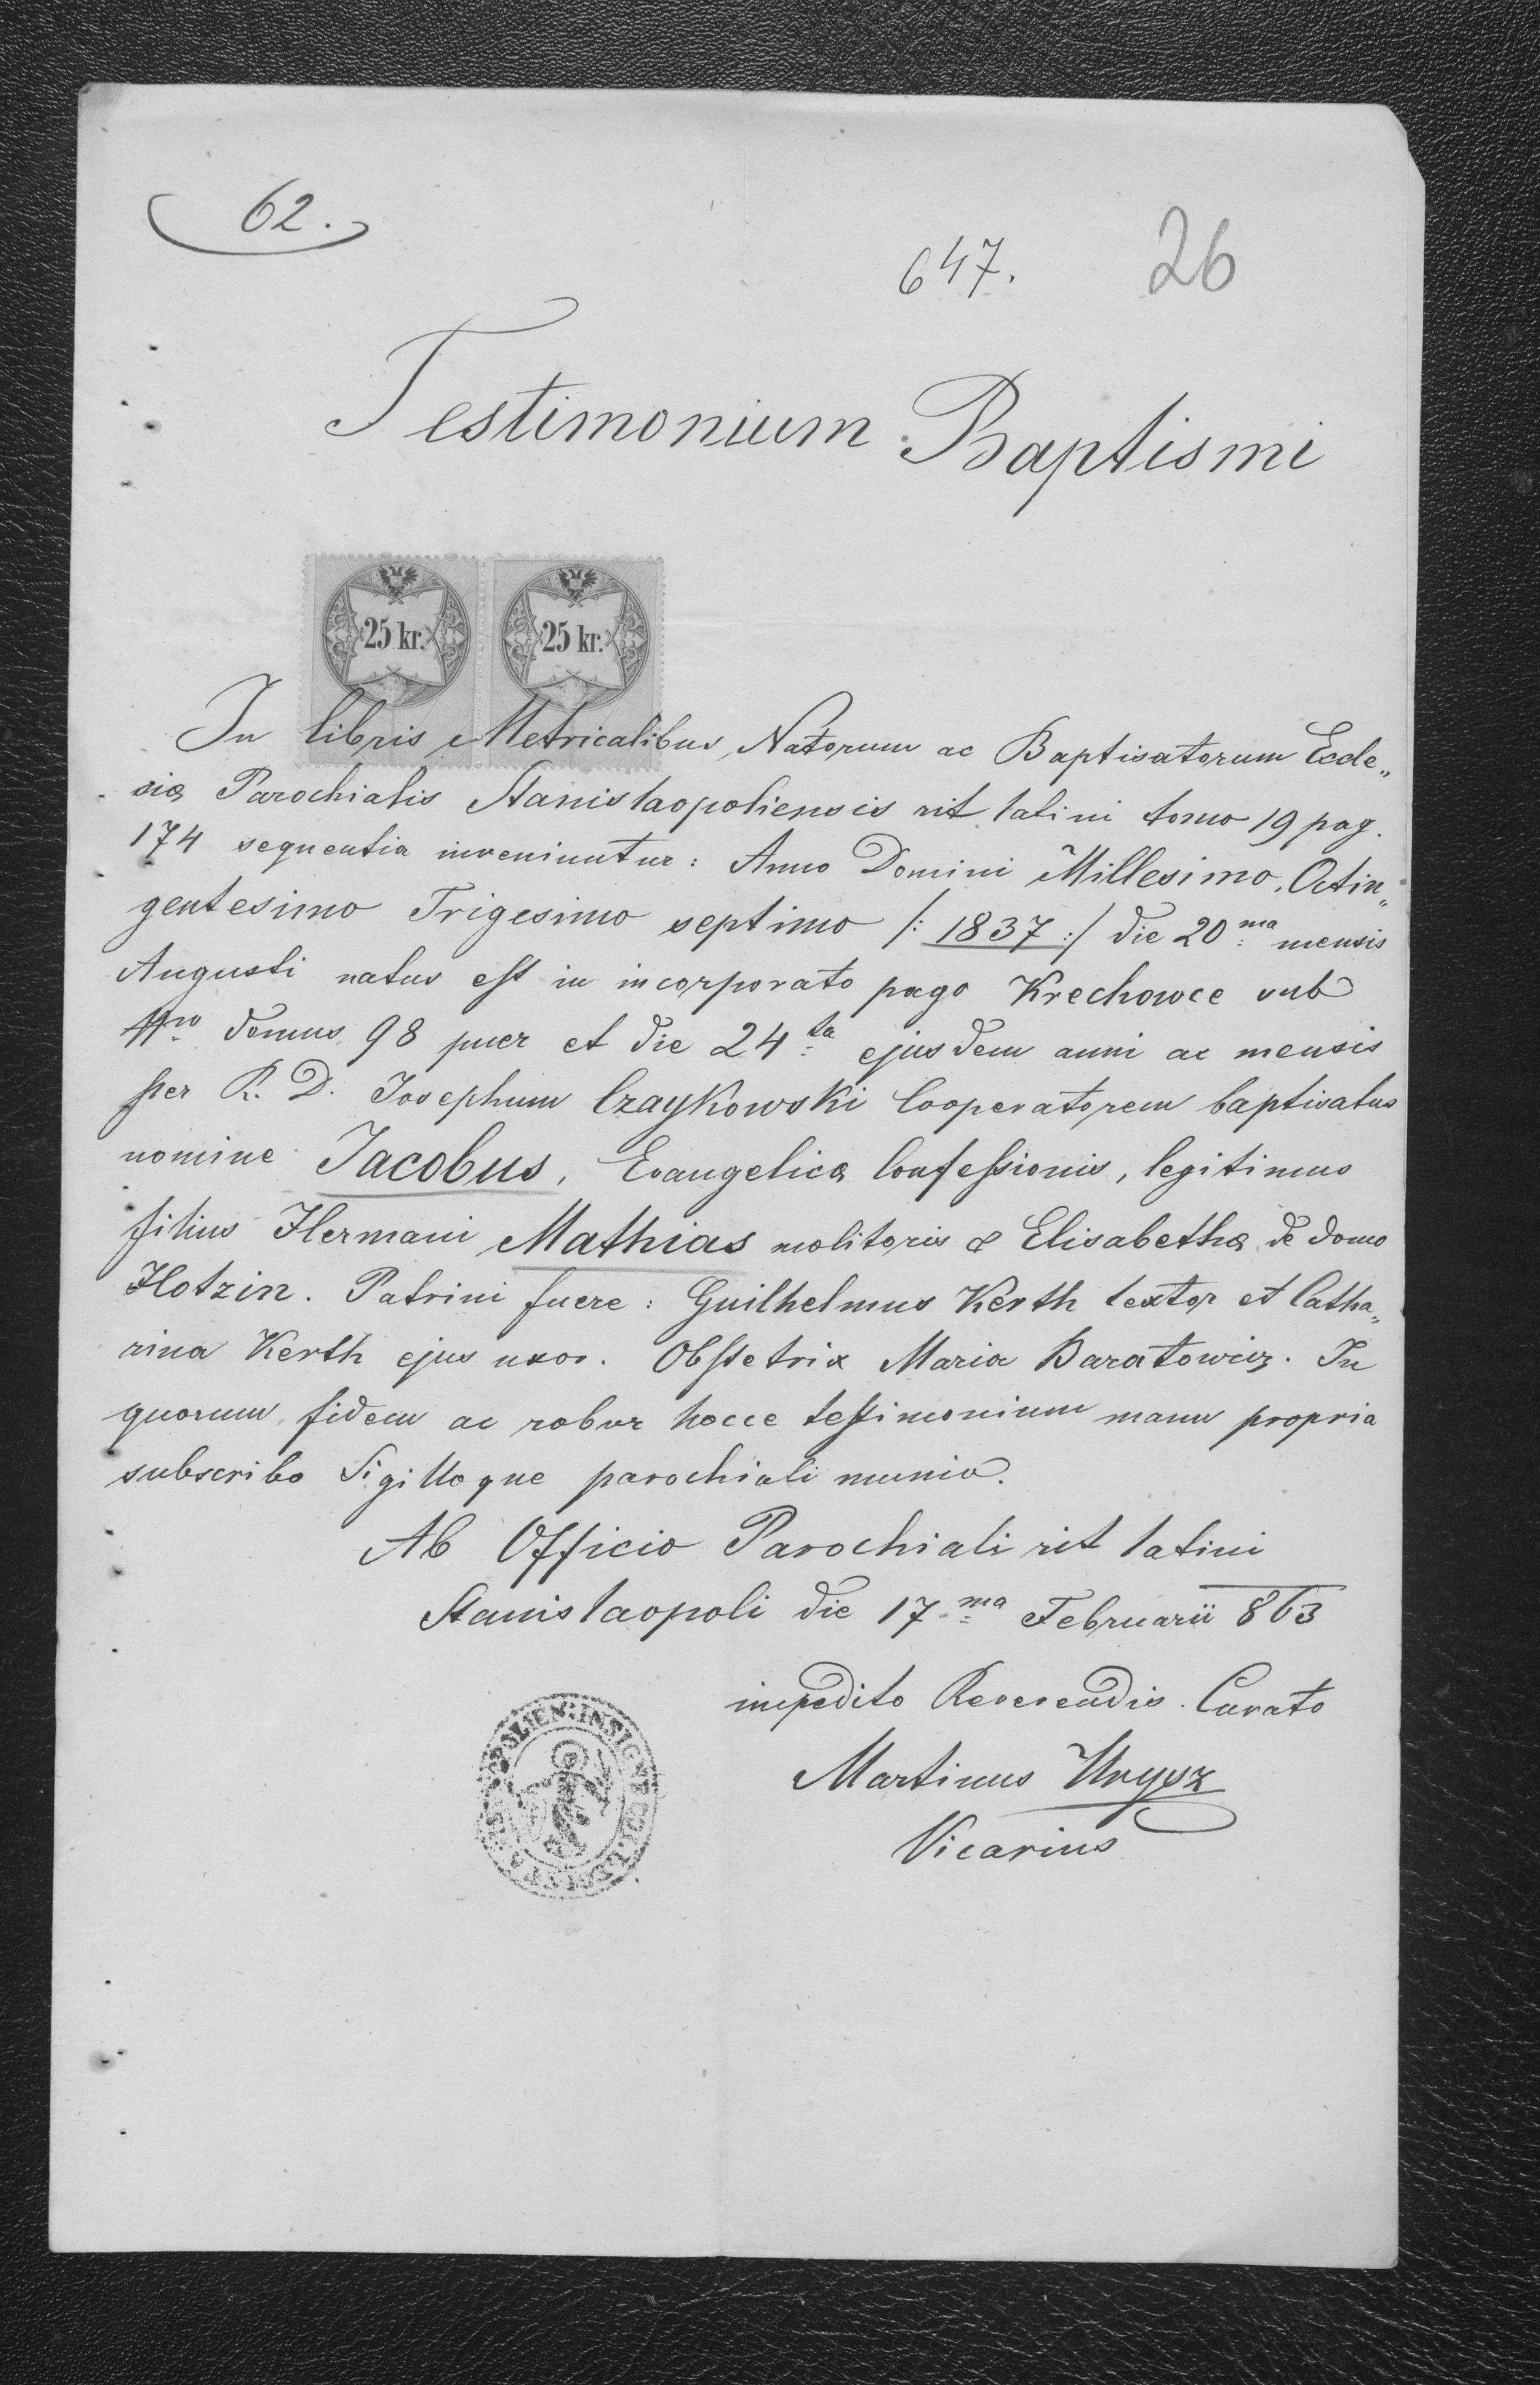 62.
647.
26
Testimonium Baptismi
25 kr. 25 kr.
In libris Metricalibus, Natorum ac Baptisatorum Eccle„
siæ Parochialis Stanislaopoliensis rit latini tomo 19 pag.
174 sequentia inveniuntur: Anno Domini Millesimo, Octin„
gentesimo Trigesimo septimo /: 1837 :/ die 20ma mensis
Augusti natus est in incorporato pago Krechowce sub
Nro domus 98 puer et die 24ta ejusdem anni ac mensis
per R. D. Josephum Czaykowski Cooperatorem baptisatus
nomine Jacobus, Evangelicæ Confessionis, legitimus
filius Hermani Mathias molitoris & Elisabethæ de domo
Hotzin. Patrini fuere: Guilhelmus Kerth textor et Catha„
rina Kerth ejus uxor. Obstetrix Maria Baratowicz. In
quorum fidem ac robur hocce testimonium manu propria
subscribo Sigilloque parochiali munio.
Ab Officio Parochiali rit latini
Stanislaopoli die 17ma Februarii 863
impedito Reverendis. Curato
Martinus
Vicarius